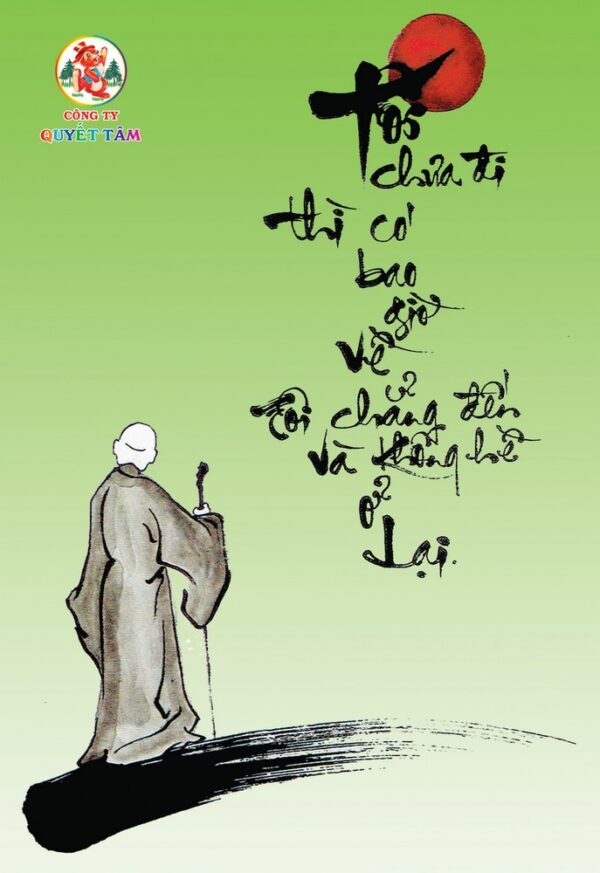 CÔNG TY
QUYẾT TÂM
Tôi
chưa đi
thì có
bao
giờ
về
Tôi chẳng đến
và không hề
ở
lại.